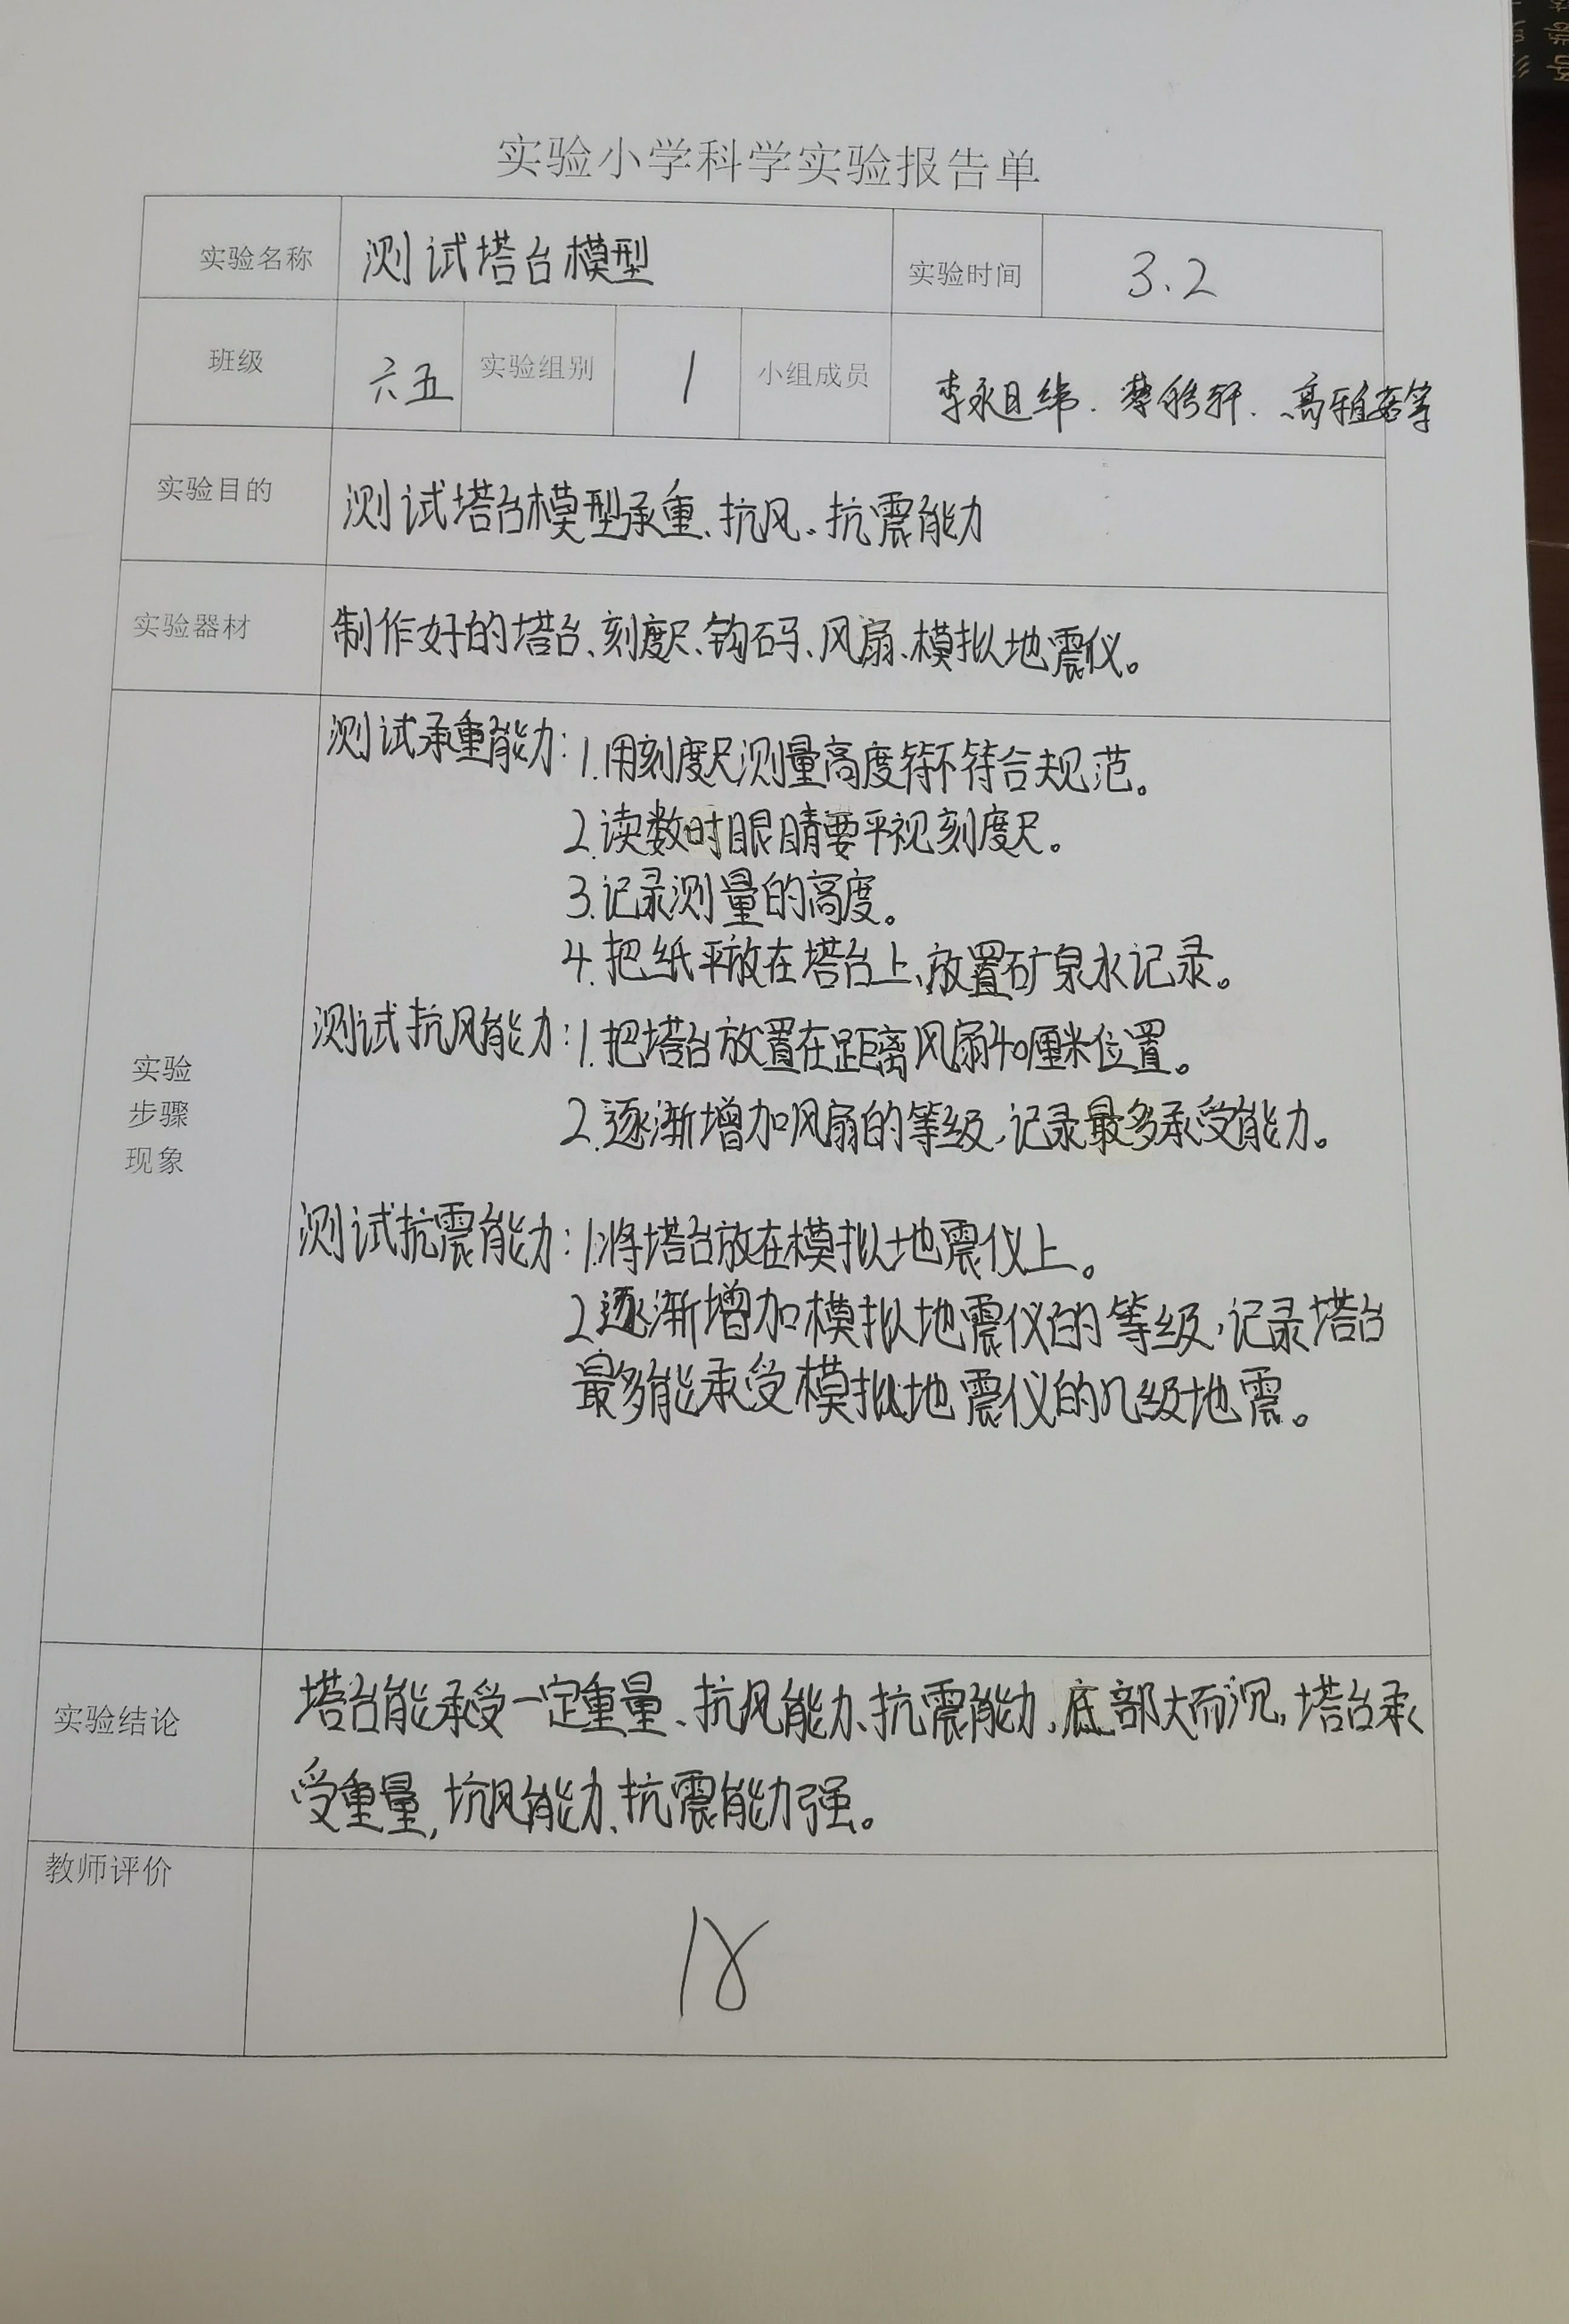 实验小学科学实验报告单
实验名称 测试塔台模型 实验时间 3.2
班级 六五 实验组别 1 小组成员 李永旦纬. 轩. 高雅茹等
实验目的 测试塔台模型承重、抗风、抗震能力
实验器材 制作好的塔台、刻度尺、钩码、风扇、模拟地震仪。
实验
步骤
现象
测试承重能力:1.用刻度尺测量高度符不符合规范。
2.读数时眼睛要平视刻度尺。
3.记录测量的高度。
4.把纸平放在塔台上、放置矿泉水记录。
测试抗风能力:1.把塔台放置在距离风扇40厘米位置。
2.逐渐增加风扇的等级,记录最多承受能力。
测试抗震能力:1.将塔台放在模拟地震仪上。
2.逐渐增加模拟地震仪的等级,记录塔台
最多能承受模拟地震仪的几级地震。
实验结论 塔台能承受一定重量、抗风能力、抗震能力,底部大而沉,塔台承
受重量,抗风能力、抗震能力强。
教师评价 18